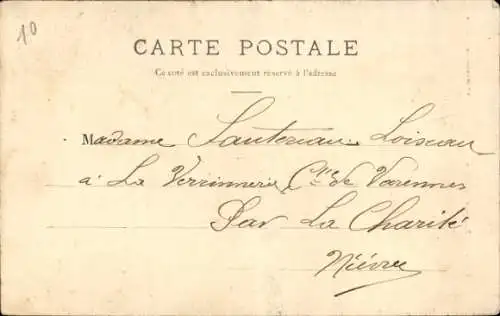 10
CARTE POSTALE
Ce coté est exclusivement réservé à l'adresse
Madame Sautereau-Loiseau
à La Verrinnerie Cne de Varennes
Par La Charité
Nièvre